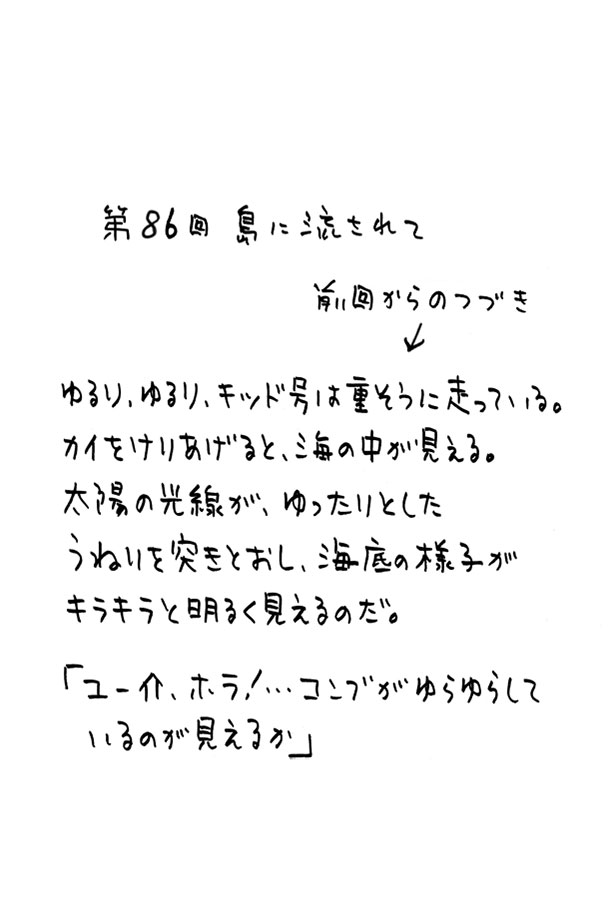 第86回 島に流されて
前回からのつづき
↓
ゆるり、ゆるり、キッド号は重そうに走っている。
カイをけりあげると、海の中が見える。
太陽の光線が、ゆったりとした
うねりを突きとおし、海底の様子が
キラキラと明るく見えるのだ。
「ユー介、ホラ!…コンブがゆらゆらして
いるのが見えるか」